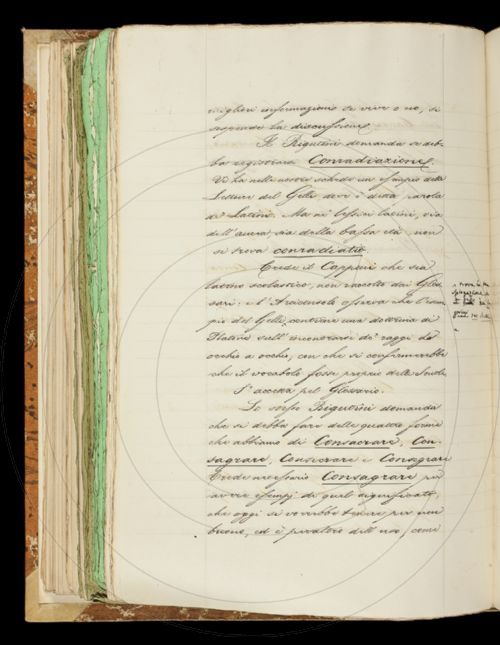 migliori informazioni se vive o no, si
sospende la discussione.
Il Rigutini domanda se deb-
ba registrarsi Conradiazione.
Vi ha nelle nostre schede un esempio delle
Letture del Gelli dove è detta parola
de' Latini. Ma ne' lessici latini, sia
dell'aurea sia della bassa età, non
si trova conradiatio.
Crede il Capponi che sia
latino scolastico, non raccolto dai Glos-
sari: e l'Arciconsolo osserva che l'esem-
pio del Gelli contiene una dottrina di
Platone sull'incontrarsi de' raggi da
occhio a occhio, con che si confermerebbe
che il vocabolo fosse proprio delle Scuole.
S'accetta pel Glossario.
Lo stesso Rigutini domanda
che si debba fare delle quattro forme
che abbiamo di Consacrare, Con-
sagrare, Consecrare e Consegrare
Crede necessario Consagrare per
avere esempi di quel significato,
che oggi si vorrebbe tenere per non
buono, ed è pur dell'uso, come